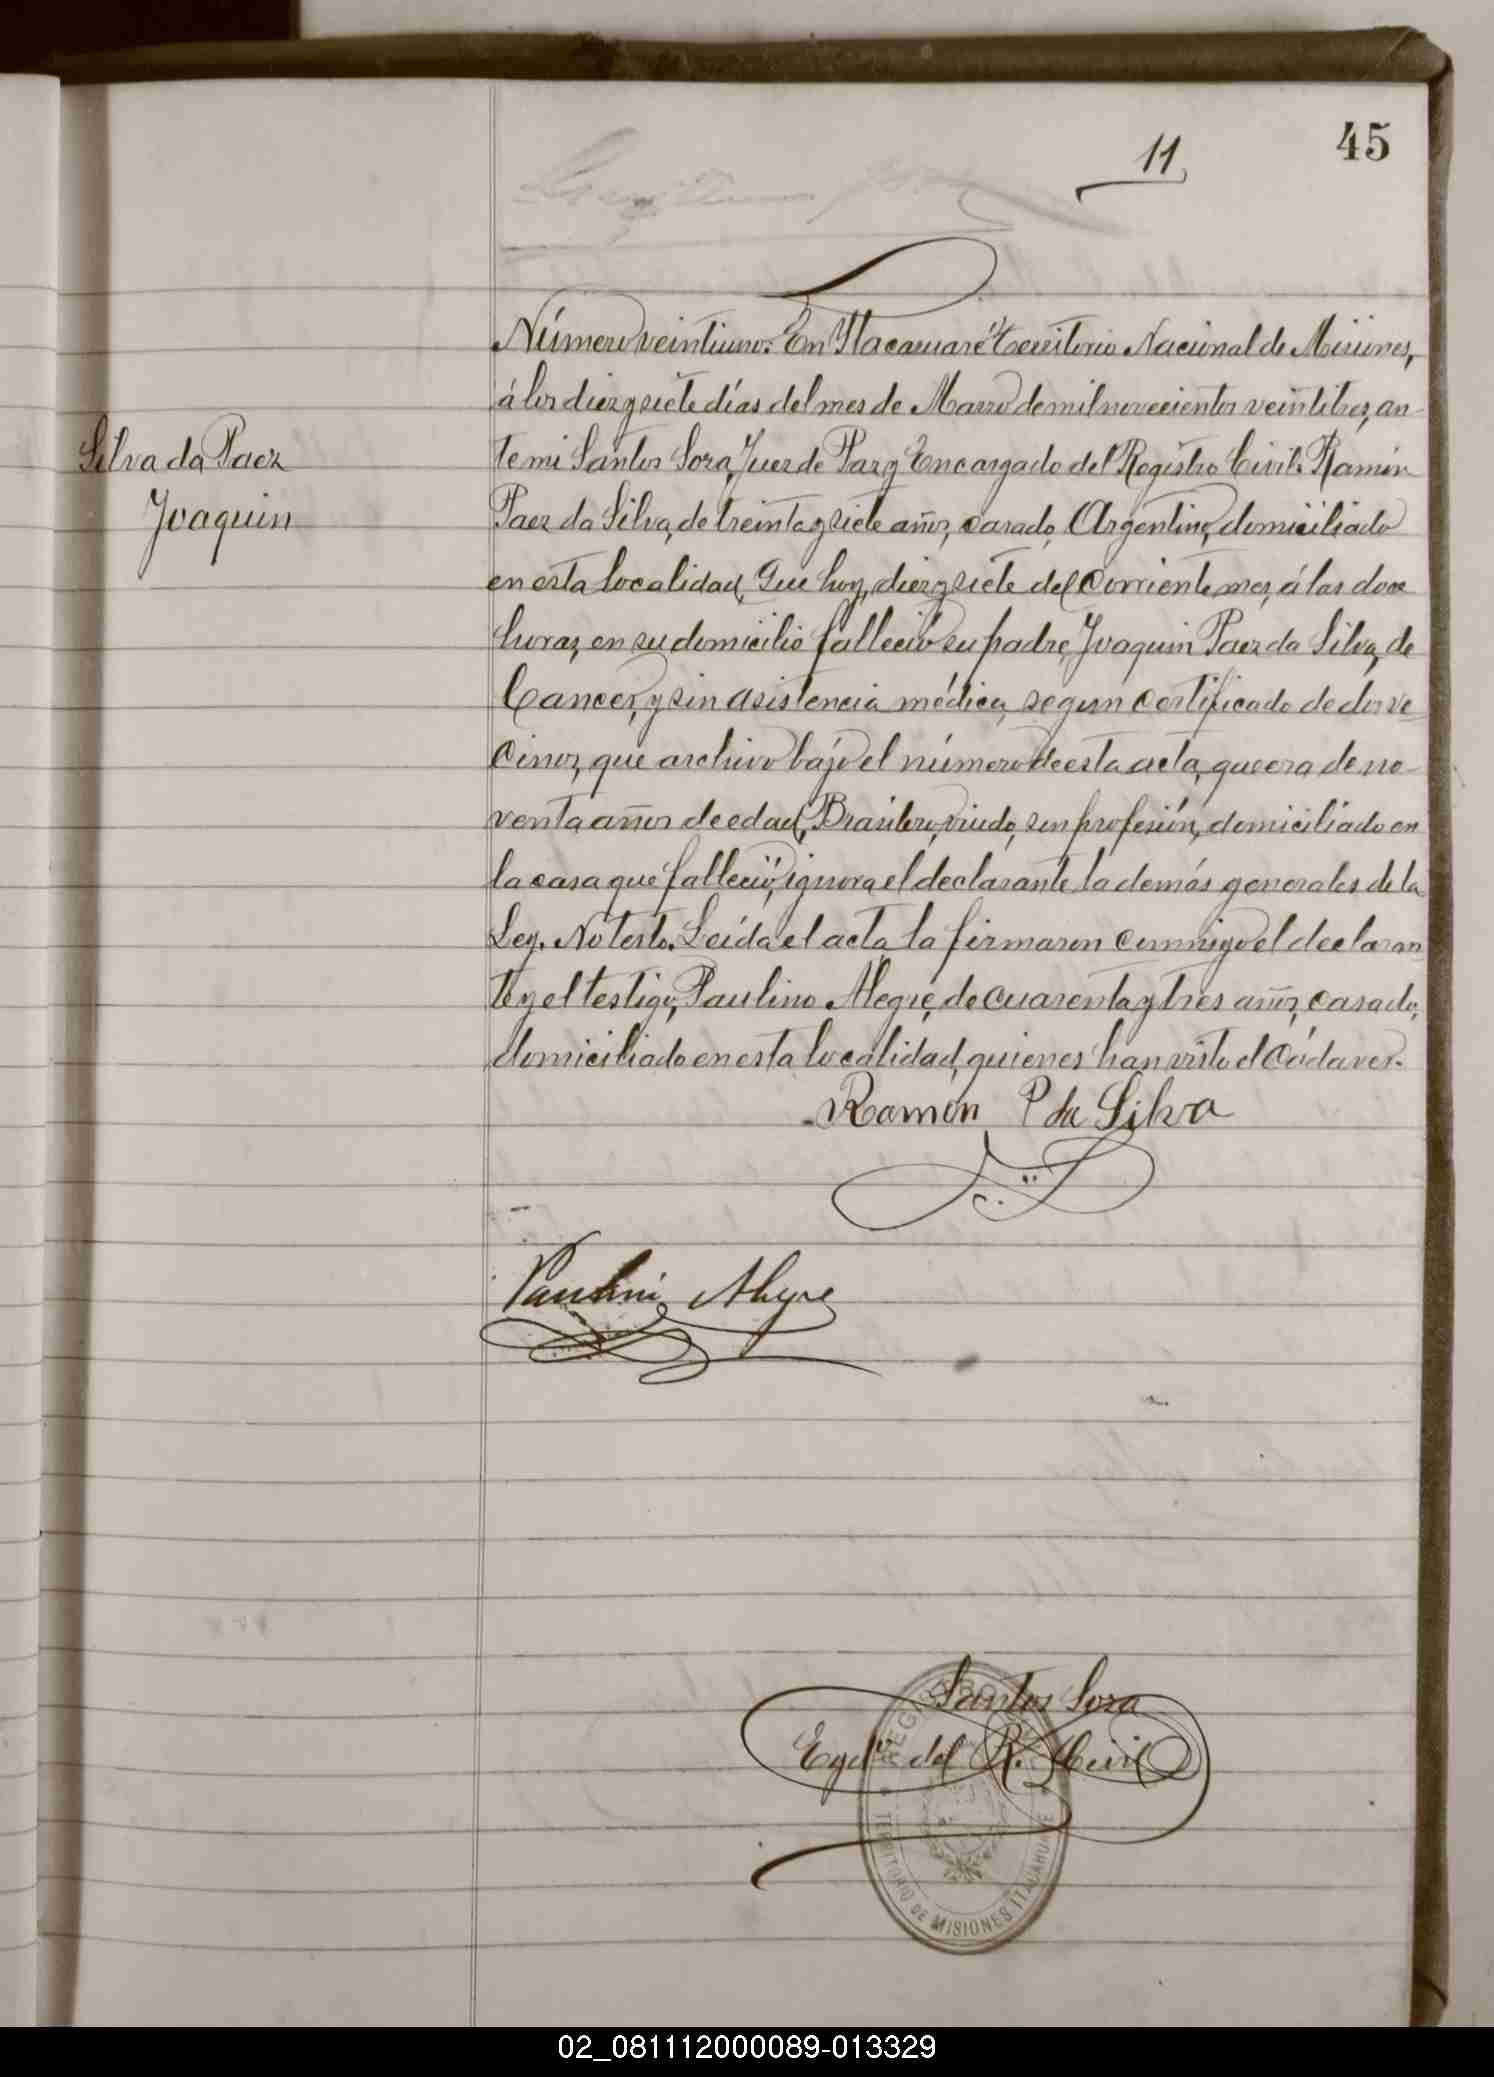 45
11
Número veintiuno: En Itacaruaré Territorio Nacional de Misiones,
á los diez y siete días del mes de Marzo de mil novecientos veintitres, an-
Silva da Paez
te mi Santos Sora, Juez de Paz y Encargado del Registro Civil: Ramón
Joaquin
Paez da Silva, de treinta y siete años, casado, Argentino, domiciliado
en esta localidad, Que hoy, diez y siete del corriente mes, á las doce
horas, en su domicilio falleció su padre, Joaquin Paez da Silva, de
Cancer, y sin asistencia médica, segun certificado de dos ve
cinos, que archivo bájo el número de esta acta, que era de no-
venta años de edad, Brasilero, viudo, sin profesión, domiciliado en
la casa que falleció, ignora el declarante la demás generales de la
Ley. No testó. Leída el acta la firmaron conmigo el declaran
te y el testigo, Paulino Alegre, de cuarenta y tres años, casado,
domiciliado en esta localidad, quienes han visto el Cádaver.
Ramón P da Silva
Paulino Alegre
Santos Sora
Egdo del R. Civil
REGISTRO CIVIL
TERRITORIO DE MISIONES
02_081112000089-013329